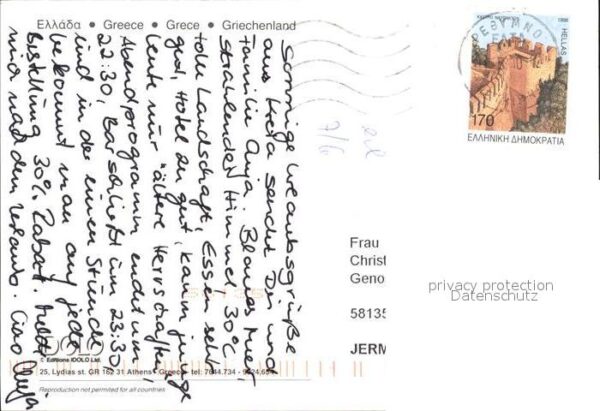 Ελλάδα • Greece • Grece • Griechenland
Sonnige Urlaubsgrüße
aus Kreta sendet Dir und
Familie Anja. Blaues Meer,
strahlender Himmel 30°C
tolle Landschaft, Essen sehr
gut, Hotel zu gut, kaum junge
Leute nur "ältere Herrschaften",
Abendprogramm endet um
22:30, Bar schließt um 23:30,
und in der einen Stunde
bekommt man auf jede
Bestellung 30% Rabatt. Melde
mich nach dem Urlaub. Ciao Anja
7/6
1998
HELLAS
170
ΕΛΛΗΝΙΚΗ ΔΗΜΟΚΡΑΤΙΑ
ΡΕΘΥΜΝΟ
Frau
Christ
Geno
58135
JERM
privacy protection
Datenschutz
© Editions IDOLO Ltd.
25, Lydias st. GR 162 31 Athens - Greece tel: 7644.734 - 9624.654
Reproduction not permited for all countries